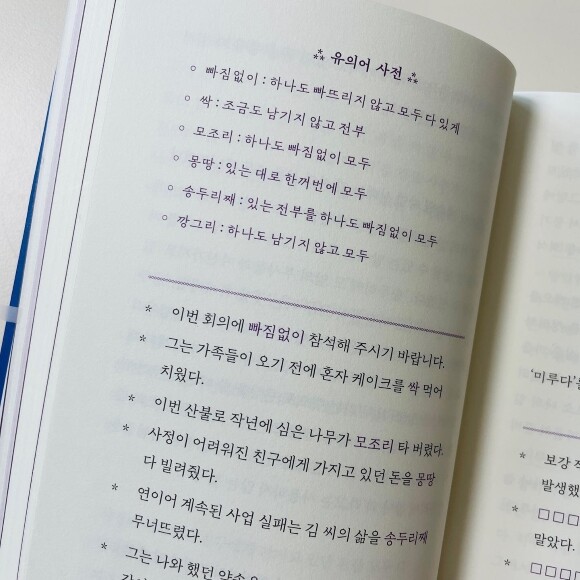 ⁂ 유의어 사전 ⁂
○ 빠짐없이 : 하나도 빠뜨리지 않고 모두 다 있게
○ 싹 : 조금도 남기지 않고 전부
○ 모조리 : 하나도 빠짐없이 모두
○ 몽땅 : 있는 대로 한꺼번에 모두
○ 송두리째 : 있는 전부를 하나도 빠짐없이 모두
○ 깡그리 : 하나도 남기지 않고 모두
* 이번 회의에 빠짐없이 참석해 주시기 바랍니다.
* 그는 가족들이 오기 전에 혼자 케이크를 싹 먹어
치웠다.
* 이번 산불로 작년에 심은 나무가 모조리 타 버렸다.
* 사정이 어려워진 친구에게 가지고 있던 돈을 몽땅
다 빌려줬다.
* 연이어 계속된 사업 실패는 김 씨의 삶을 송두리째
무너뜨렸다.
* 그는 나와 했던 약속
'미루다'
* 보강
발생했
* □□□
말았다.
* □□□□